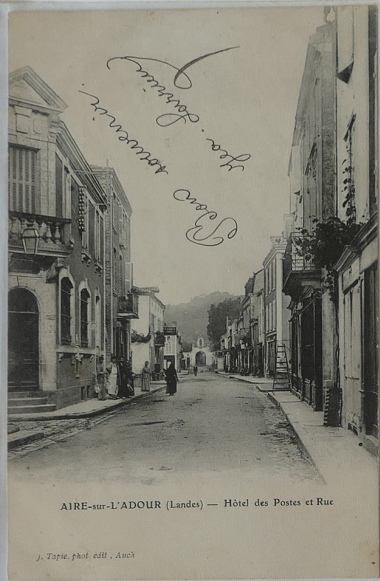 Bon souvenir
AIRE-sur-L'ADOUR (Landes) — Hôtel des Postes et Rue
J. Tapie, phot. édit., Auch